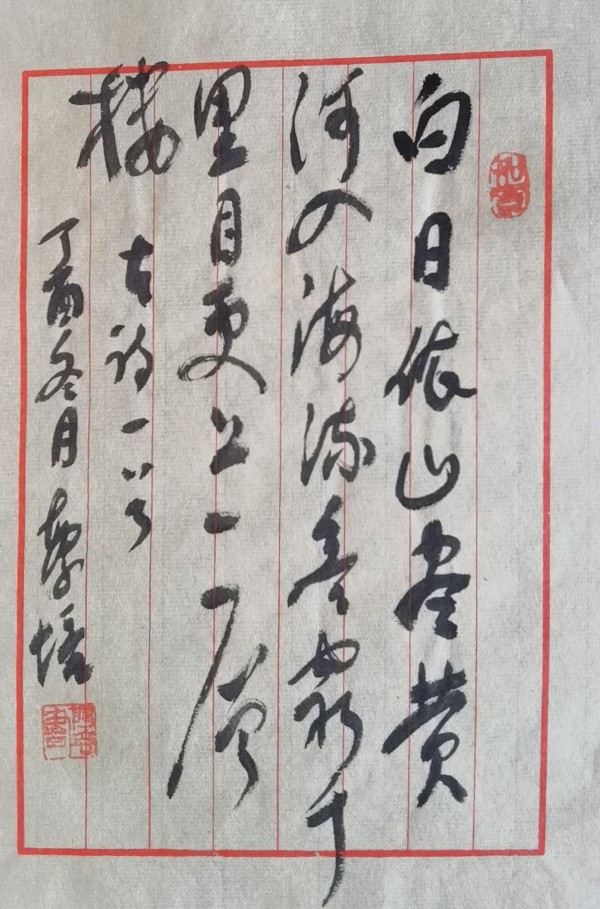 白日依山盡黄
河入海流欲窮千
里目更上一層
楼
古诗一首
丁酉冬月